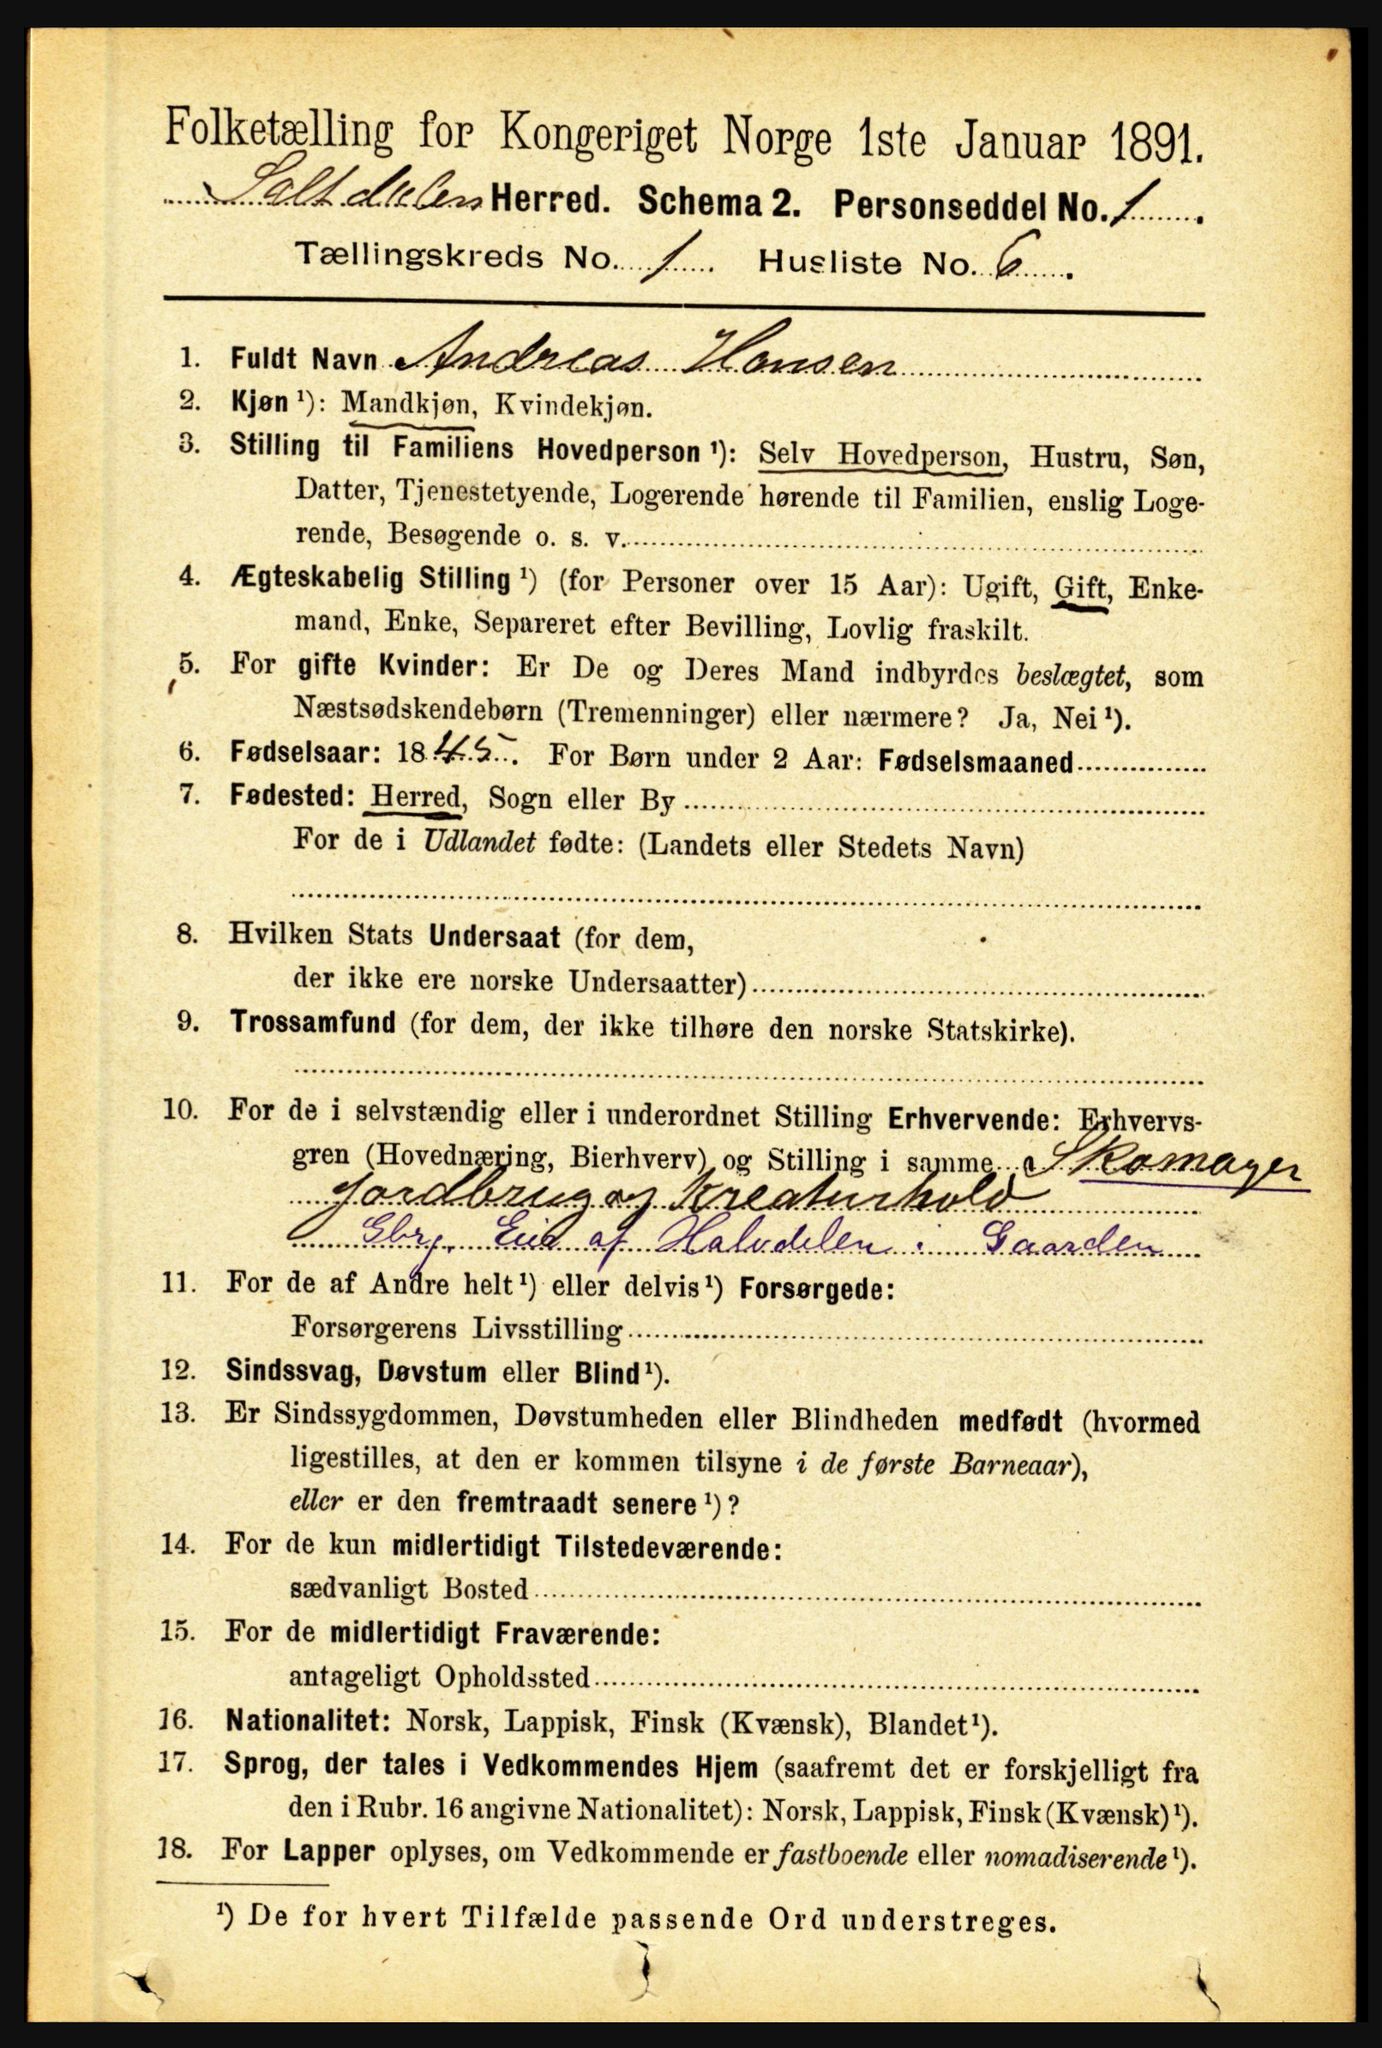 Folketælling for Kongeriget Norge 1ste Januar 1891.
Saltdalen Herred. Schema 2. Personseddel No. 1.
Tællingskreds No. 1. Husliste No. 6.
1. Fuldt Navn Andreas Hansen
2. Kjøn ¹): Mandkjøn, Kvindekjøn.
3. Stilling til Familiens Hovedperson ¹): Selv Hovedperson, Hustru, Søn,
Datter, Tjenestetyende, Logerende hørende til Familien, enslig Loge-
rende, Besøgende o. s. v.
4. Ægteskabelig Stilling ¹) (for Personer over 15 Aar): Ugift, Gift, Enke-
mand, Enke, Separeret efter Bevilling, Lovlig fraskilt.
5. For gifte Kvinder: Er De og Deres Mand indbyrdes beslægtet, som
Næstsødskendebørn (Tremenninger) eller nærmere? Ja, Nei ¹).
6. Fødselsaar: 1845. For Børn under 2 Aar: Fødselsmaaned
7. Fødested: Herred, Sogn eller By
For de i Udlandet fødte: (Landets eller Stedets Navn)
8. Hvilken Stats Undersaat (for dem,
der ikke ere norske Undersaatter)
9. Trossamfund (for dem, der ikke tilhøre den norske Statskirke).
10. For de i selvstændig eller i underordnet Stilling Erhvervende: Erhvervs-
gren (Hovednæring, Bierhverv) og Stilling i samme Skomager
Jordbrug og Kreaturhold
Gbrj. Eier af Halvdelen i Gaarden
11. For de af Andre helt ¹) eller delvis ¹) Forsørgede:
Forsørgerens Livsstilling
12. Sindssvag, Døvstum eller Blind ¹).
13. Er Sindssygdommen, Døvstumheden eller Blindheden medfødt (hvormed
ligestilles, at den er kommen tilsyne i de første Barneaar),
eller er den fremtraadt senere ¹)?
14. For de kun midlertidigt Tilstedeværende:
sædvanligt Bosted
15. For de midlertidigt Fraværende:
antageligt Opholdssted
16. Nationalitet: Norsk, Lappisk, Finsk (Kvænsk), Blandet ¹).
17. Sprog, der tales i Vedkommendes Hjem (saafremt det er forskjelligt fra
den i Rubr. 16 angivne Nationalitet): Norsk, Lappisk, Finsk (Kvænsk) ¹).
18. For Lapper oplyses, om Vedkommende er fastboende eller nomadiserende ¹).
¹) De for hvert Tilfælde passende Ord understreges.